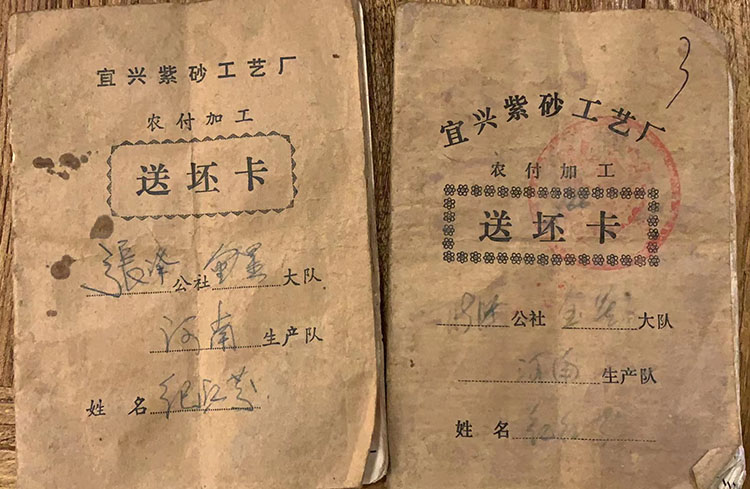 宜兴紫砂工艺厂
农付加工
送坯卡
張泽公社 金星大队
河南生产队
姓名 纪红芬
3
宜兴紫砂工艺厂
农付加工
送坯卡
公社 大队
河南生产队
姓名